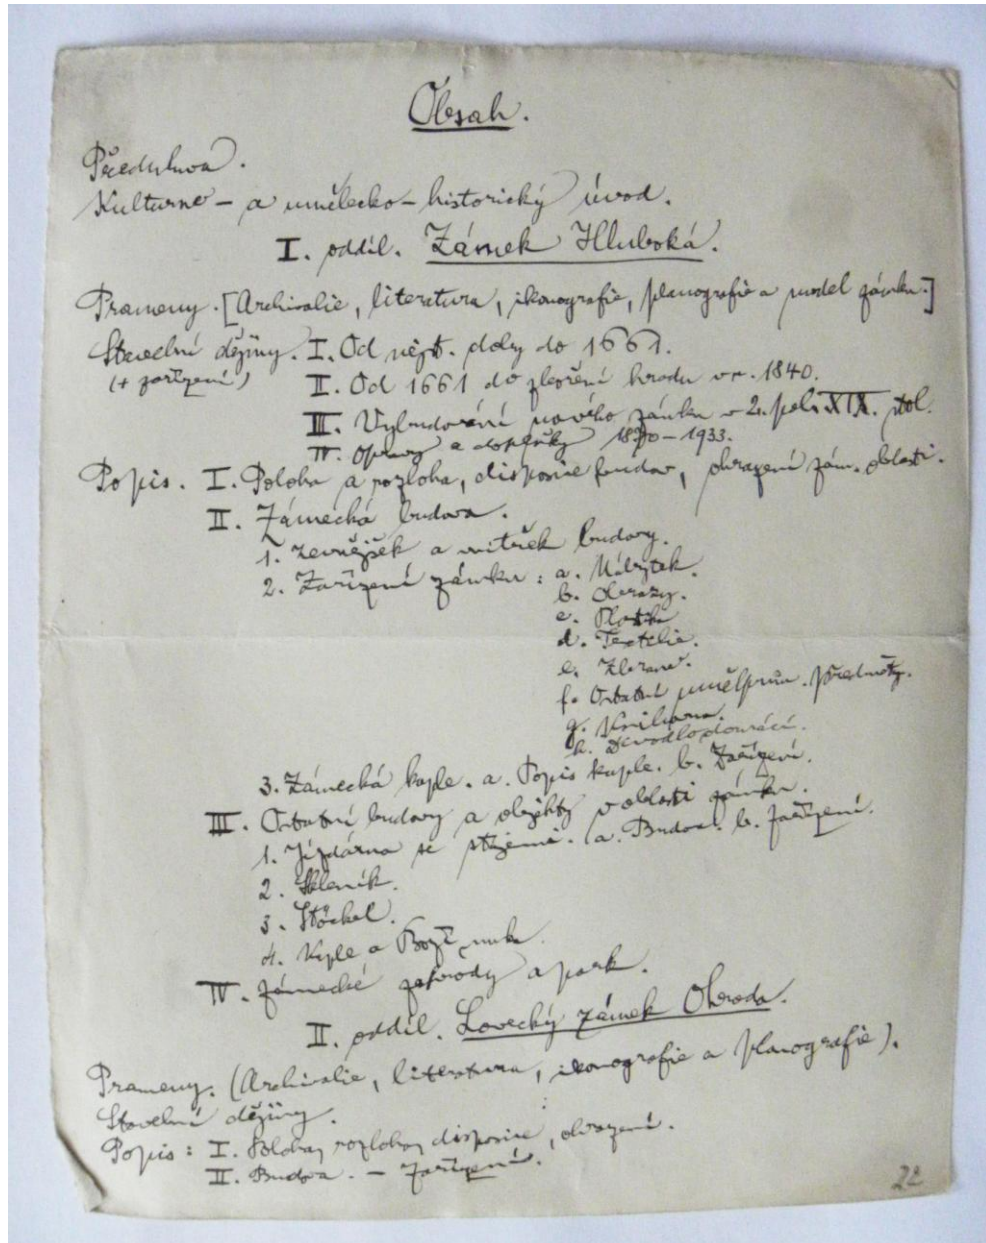 Obsah.
Předmluva.
Kulturně – a umělecko – historický úvod.
I. oddíl. Zámek Hluboká.
Prameny. [Archivalie, literatura, ikonografie, planografie a model zámku.]
Stavební dějiny. I. Od nejst. doby do 1661.
(+ zařízení) II. Od 1661 do zboření hradu v r. 1840.
III. Vybudování nového zámku v 2. pol. XIX. stol.
IV. Opravy a doplňky –1933.
Popis. I. Poloha a rozloha, disposice budov, ohrazení zám. oblasti.
II. Zámecká budova.
1. Zevnějšek a vnitřek budovy.
2. Zařízení zámku: a. Nábytek.
b. Obrazy.
c. Plastika
d. Textilie.
e. Zbraně.
f. Ostatní umělprům. předměty.
g. Knihovna.
h. Divadlo domácí.
3. Zámecká kaple. a. Popis kaple. b. Zařízení.
III. Ostatní budovy a objekty v oblasti zámku.
1. Jízdárna se stájemi. a. Budova. b. Zařízení.
2. Skleník.
3. Stöckel.
4. Kaple a Boží muka.
IV. Zámecké zahrady a park.
II. oddíl. Lovecký zámek Ohrada.
Prameny. (Archivalie, literatura, ikonografie a planografie).
Stavební dějiny.
Popis: I. Poloha, rozloha, disposice, ohrazení.
II. Budova. – Zařízení.
22